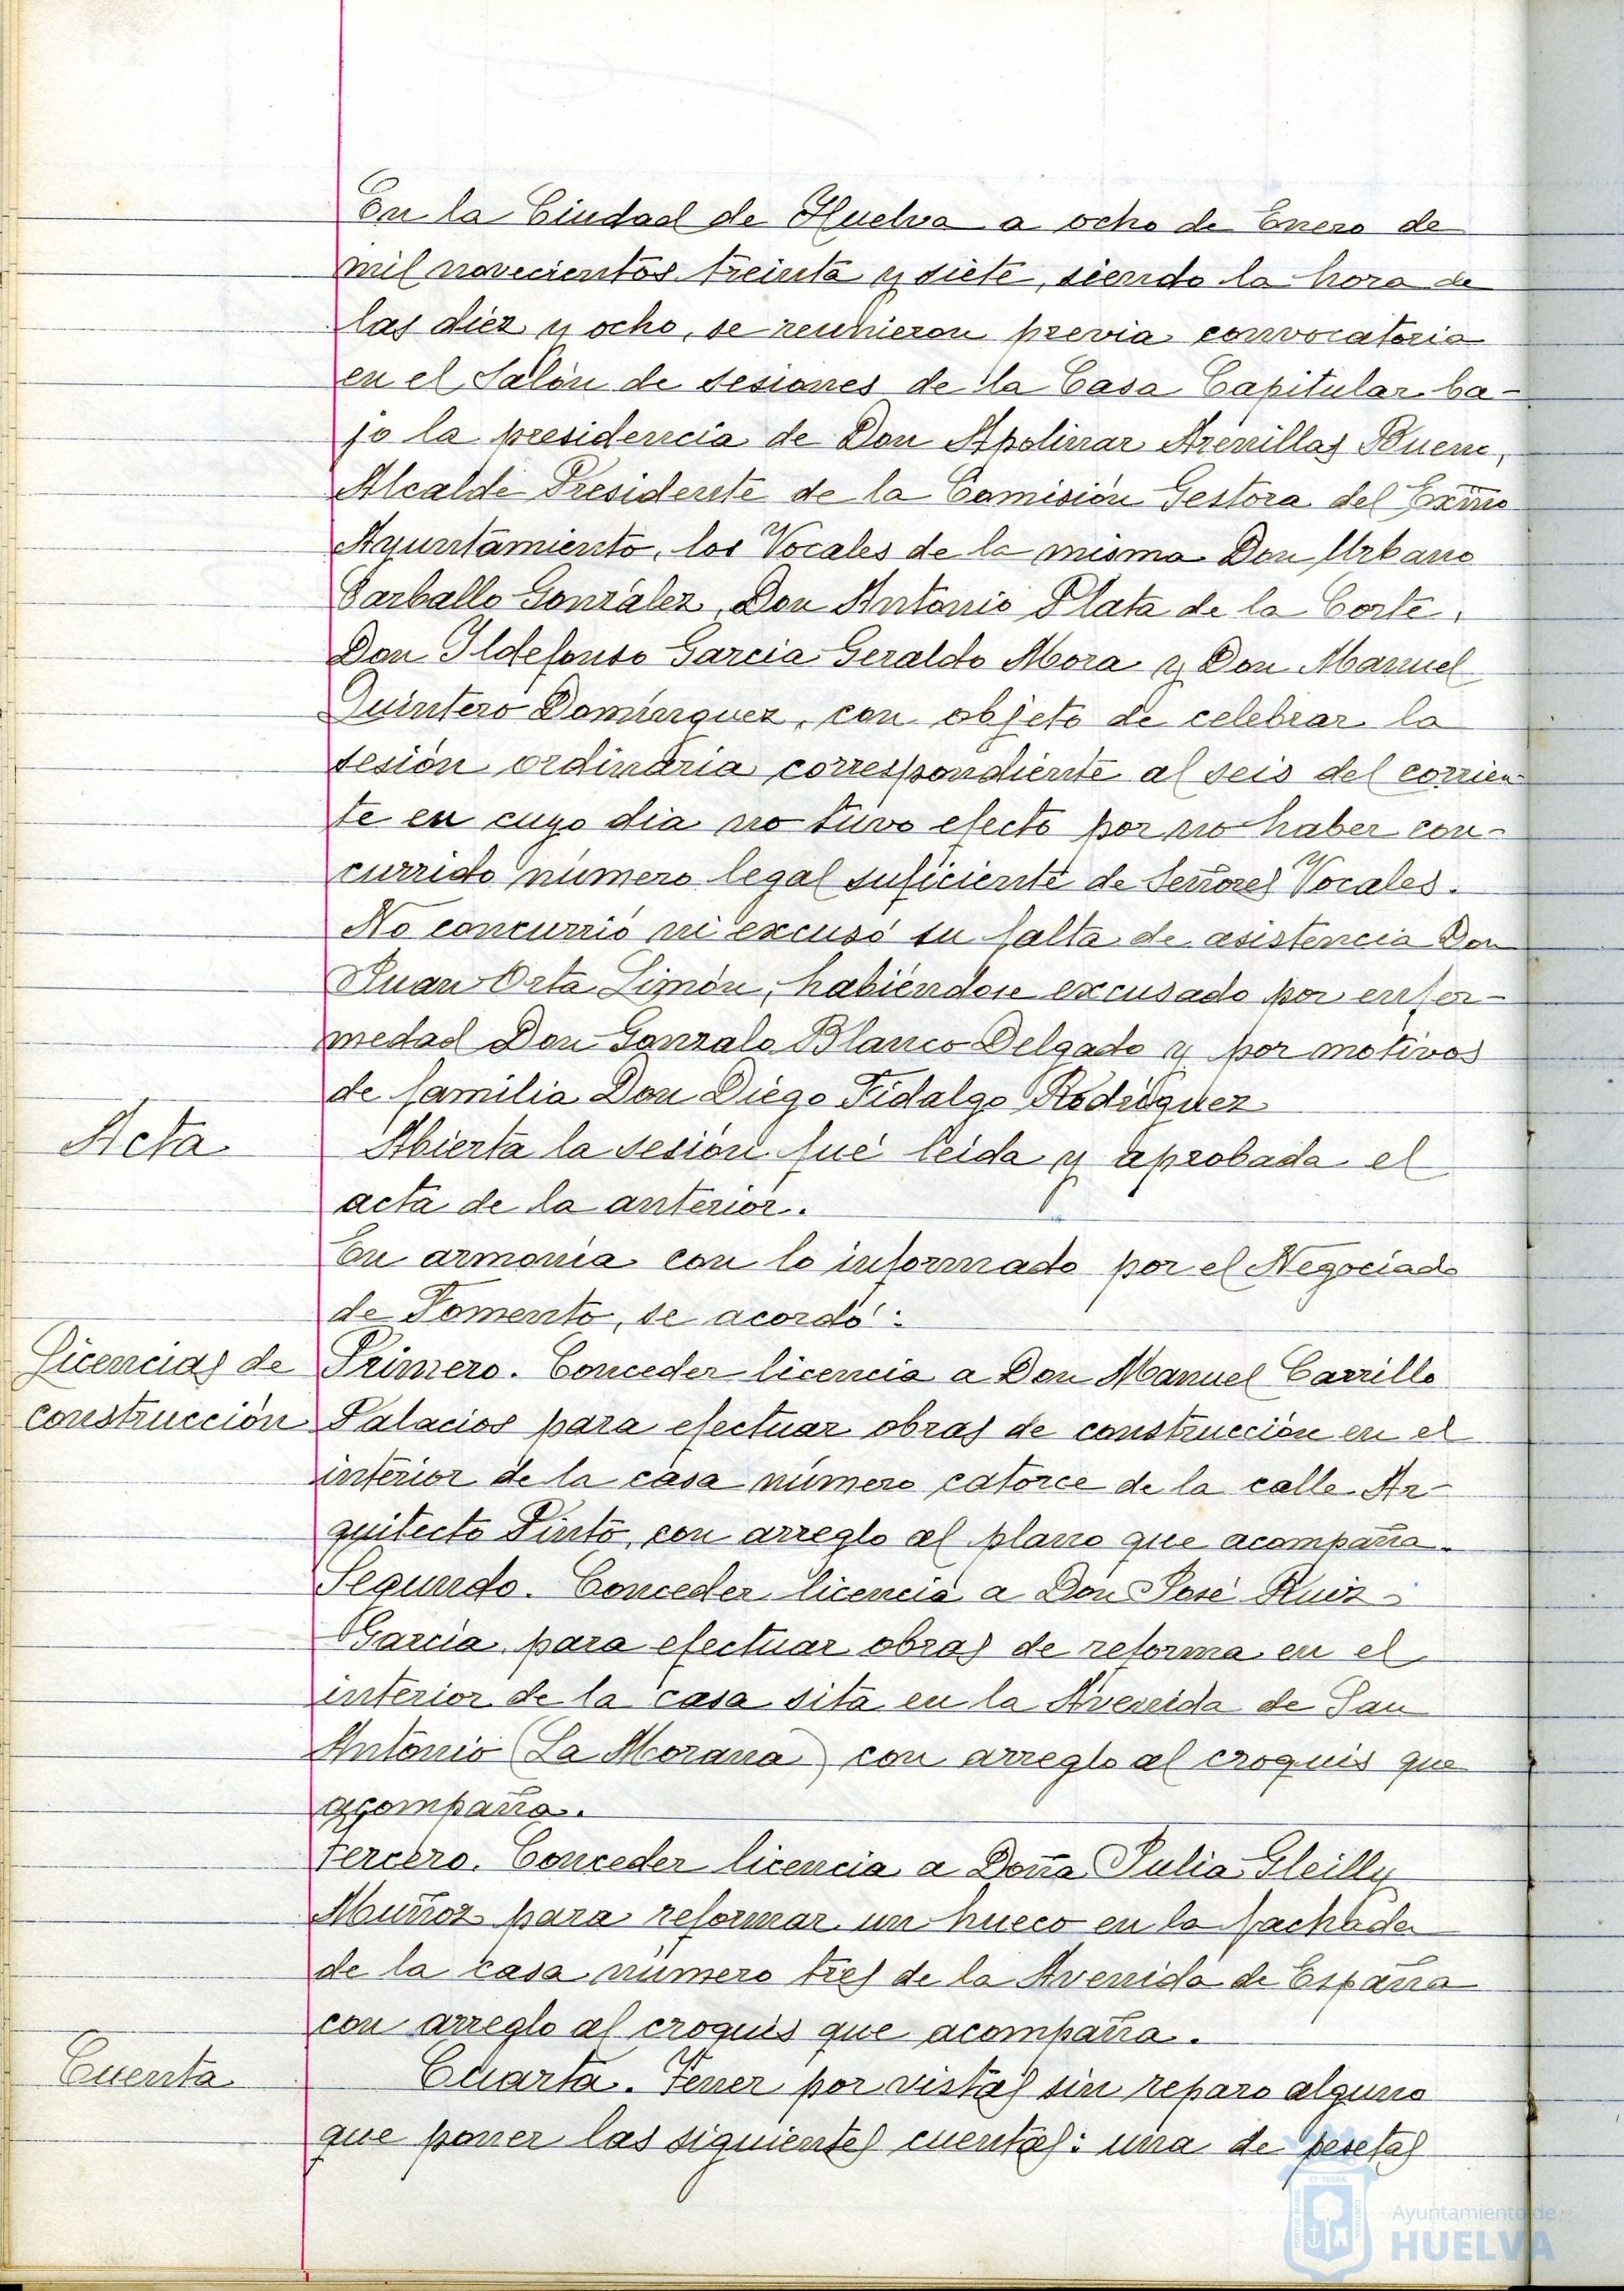 En la Ciudad de Huelva a ocho de Enero de
mil novecientos treinta y siete, siendo la hora de
las diez y ocho, se reunieron previa convocatoria
en el Salón de sesiones de la Casa Capitular ba-
jo la presidencia de Don Apolinar Arenillas Bueno,
Alcalde Presidente de la Comisión Gestora del Excmo
Ayuntamiento, los Vocales de la misma Don Urbano
Carballo González, Don Antonio Plata de la Corte,
Don Ildefonso Garcia Geraldo Mora y Don Manuel
Quintero Domínguez, con objeto de celebrar la
sesión ordinaria correspondiente al seis del corrien-
te en cuyo dia no tuvo efecto por no haber con-
currido número legal suficiente de Señores Vocales.
No concurrió ni excusó su falta de asistencia Don
Juan Orta Limón, habiéndose excusado por enfer-
medad Don Gonzalo Blanco Delgado y por motivos
de familia Don Diego Fidalgo Rodríguez
Acta
Abierta la sesión fué leida y aprobada el
acta de la anterior.
En armonia con lo informado por el Negociado
de Fomento, se acordó:
Licencias de
construcción
Primero. Conceder licencia a Don Manuel Carrillo
Palacios para efectuar obras de construcción en el
interior de la casa número catorce de la calle Ar-
quitecto Pinto, con arreglo al plano que acompaña.
Segundo. Conceder licencia a Don José Ruiz
Garcia para efectuar obras de reforma en el
interior de la casa sita en la Avenida de San
Antonio (La Morana) con arreglo al croquis que
acompaña.
Tercero. Conceder licencia a Doña Julia
Muñoz para reformar un hueco en la fachada
de la casa número tres de la Avenida de España
con arreglo al croquis que acompaña.
Cuenta
Cuarta. Tener por vistas sin reparo alguno
que poner las siguientes cuentas: una de pesetas
Ayuntamiento de
HUELVA